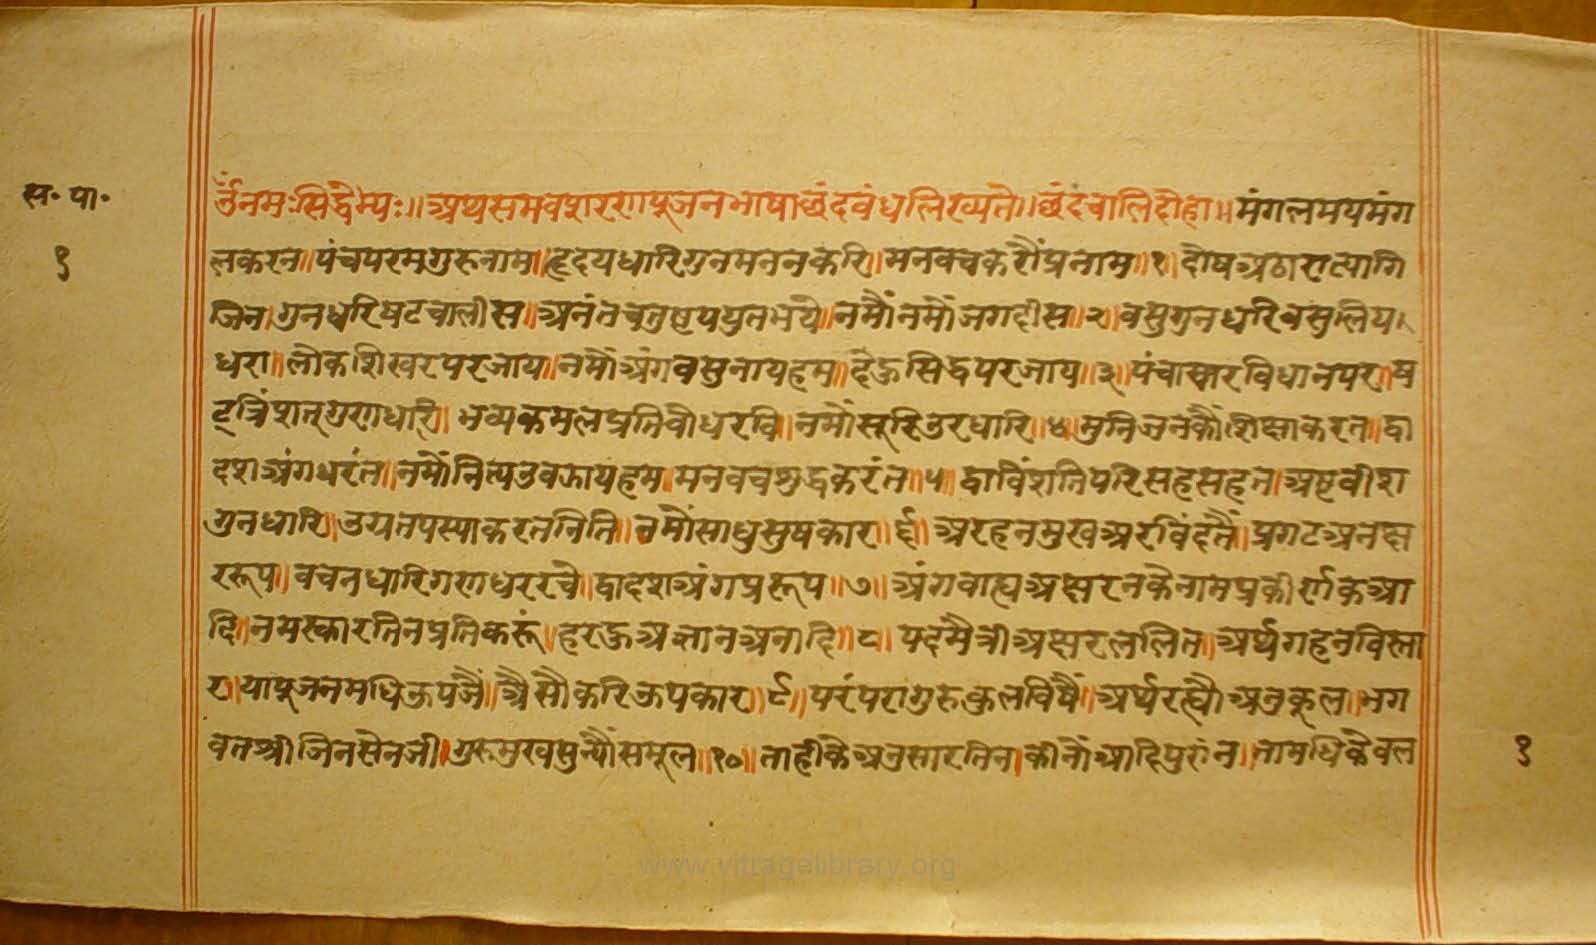 स॰ पा॰
१
ॐनमःसिद्धेभ्यः॥अथसमवशरणपूजनभाषाछंदवंधलिख्यते॥छंदचालिदोहा॥मंगलमयमंग
लकरन॥पंचपरमगुरुनाम॥हृदयधारिगुनमननकरि॥मनवचकरौंप्रनाम॥१॥दोषअठारात्यागि
जिन।गुनधरिषटचालीस॥अनंतचतुष्टययुतभये॥नमौंनमौंजगदीस॥२॥वसुगुनधरिवसुलिय।
धरा॥लोकशिखरपरजाय॥नमौंअंगवसुनायहम॥देऊसिद्धपरजाय॥३॥पंचाचारविधानपर॥ष
ट्त्रिंशत्गुणधारि॥भव्यकमलप्रतिवोधरवि॥नमौंसूरिउरधारि॥४॥मुनिजनकौंशिक्षाकरत॥द्वा
दशअंगधरंत॥नमौंनित्यउवझायहम।मनवचशुद्धकरंत॥५॥द्वाविंशतिपरिसहसहत।अष्टवीश
गुनधारि॥उग्रतपस्याकरतनिति॥नमौंसाधुसुषकार॥६॥अरहनमुखअरविंदतैं॥प्रगटअनक्ष
ररूप॥वचनधारिगणधररचे॥द्वादशअंगप्ररूप॥७॥अंगवाह्यअक्षरनकेनामप्रकीर्णकआ
दि॥नमस्कारतिनप्रतिकरूं॥हरऊअज्ञानअनादि॥८॥पदमैत्रीअक्षरललित॥अर्थगहनविस्ता
र॥यापूजनमधिऊपजैं॥अैसौकरिऊपकार॥९॥परंपरागुरुकुलविषैं॥अर्थरख्यौअनुकूल॥भग
वतश्रीजिनसेनजी॥गुरुमुखसुन्यौंसमूल॥१०॥ताहीकेअनुसारतिन।कीनौंआदिपुरांन॥तामधिकेवल
१
www.vitragelibrary.org